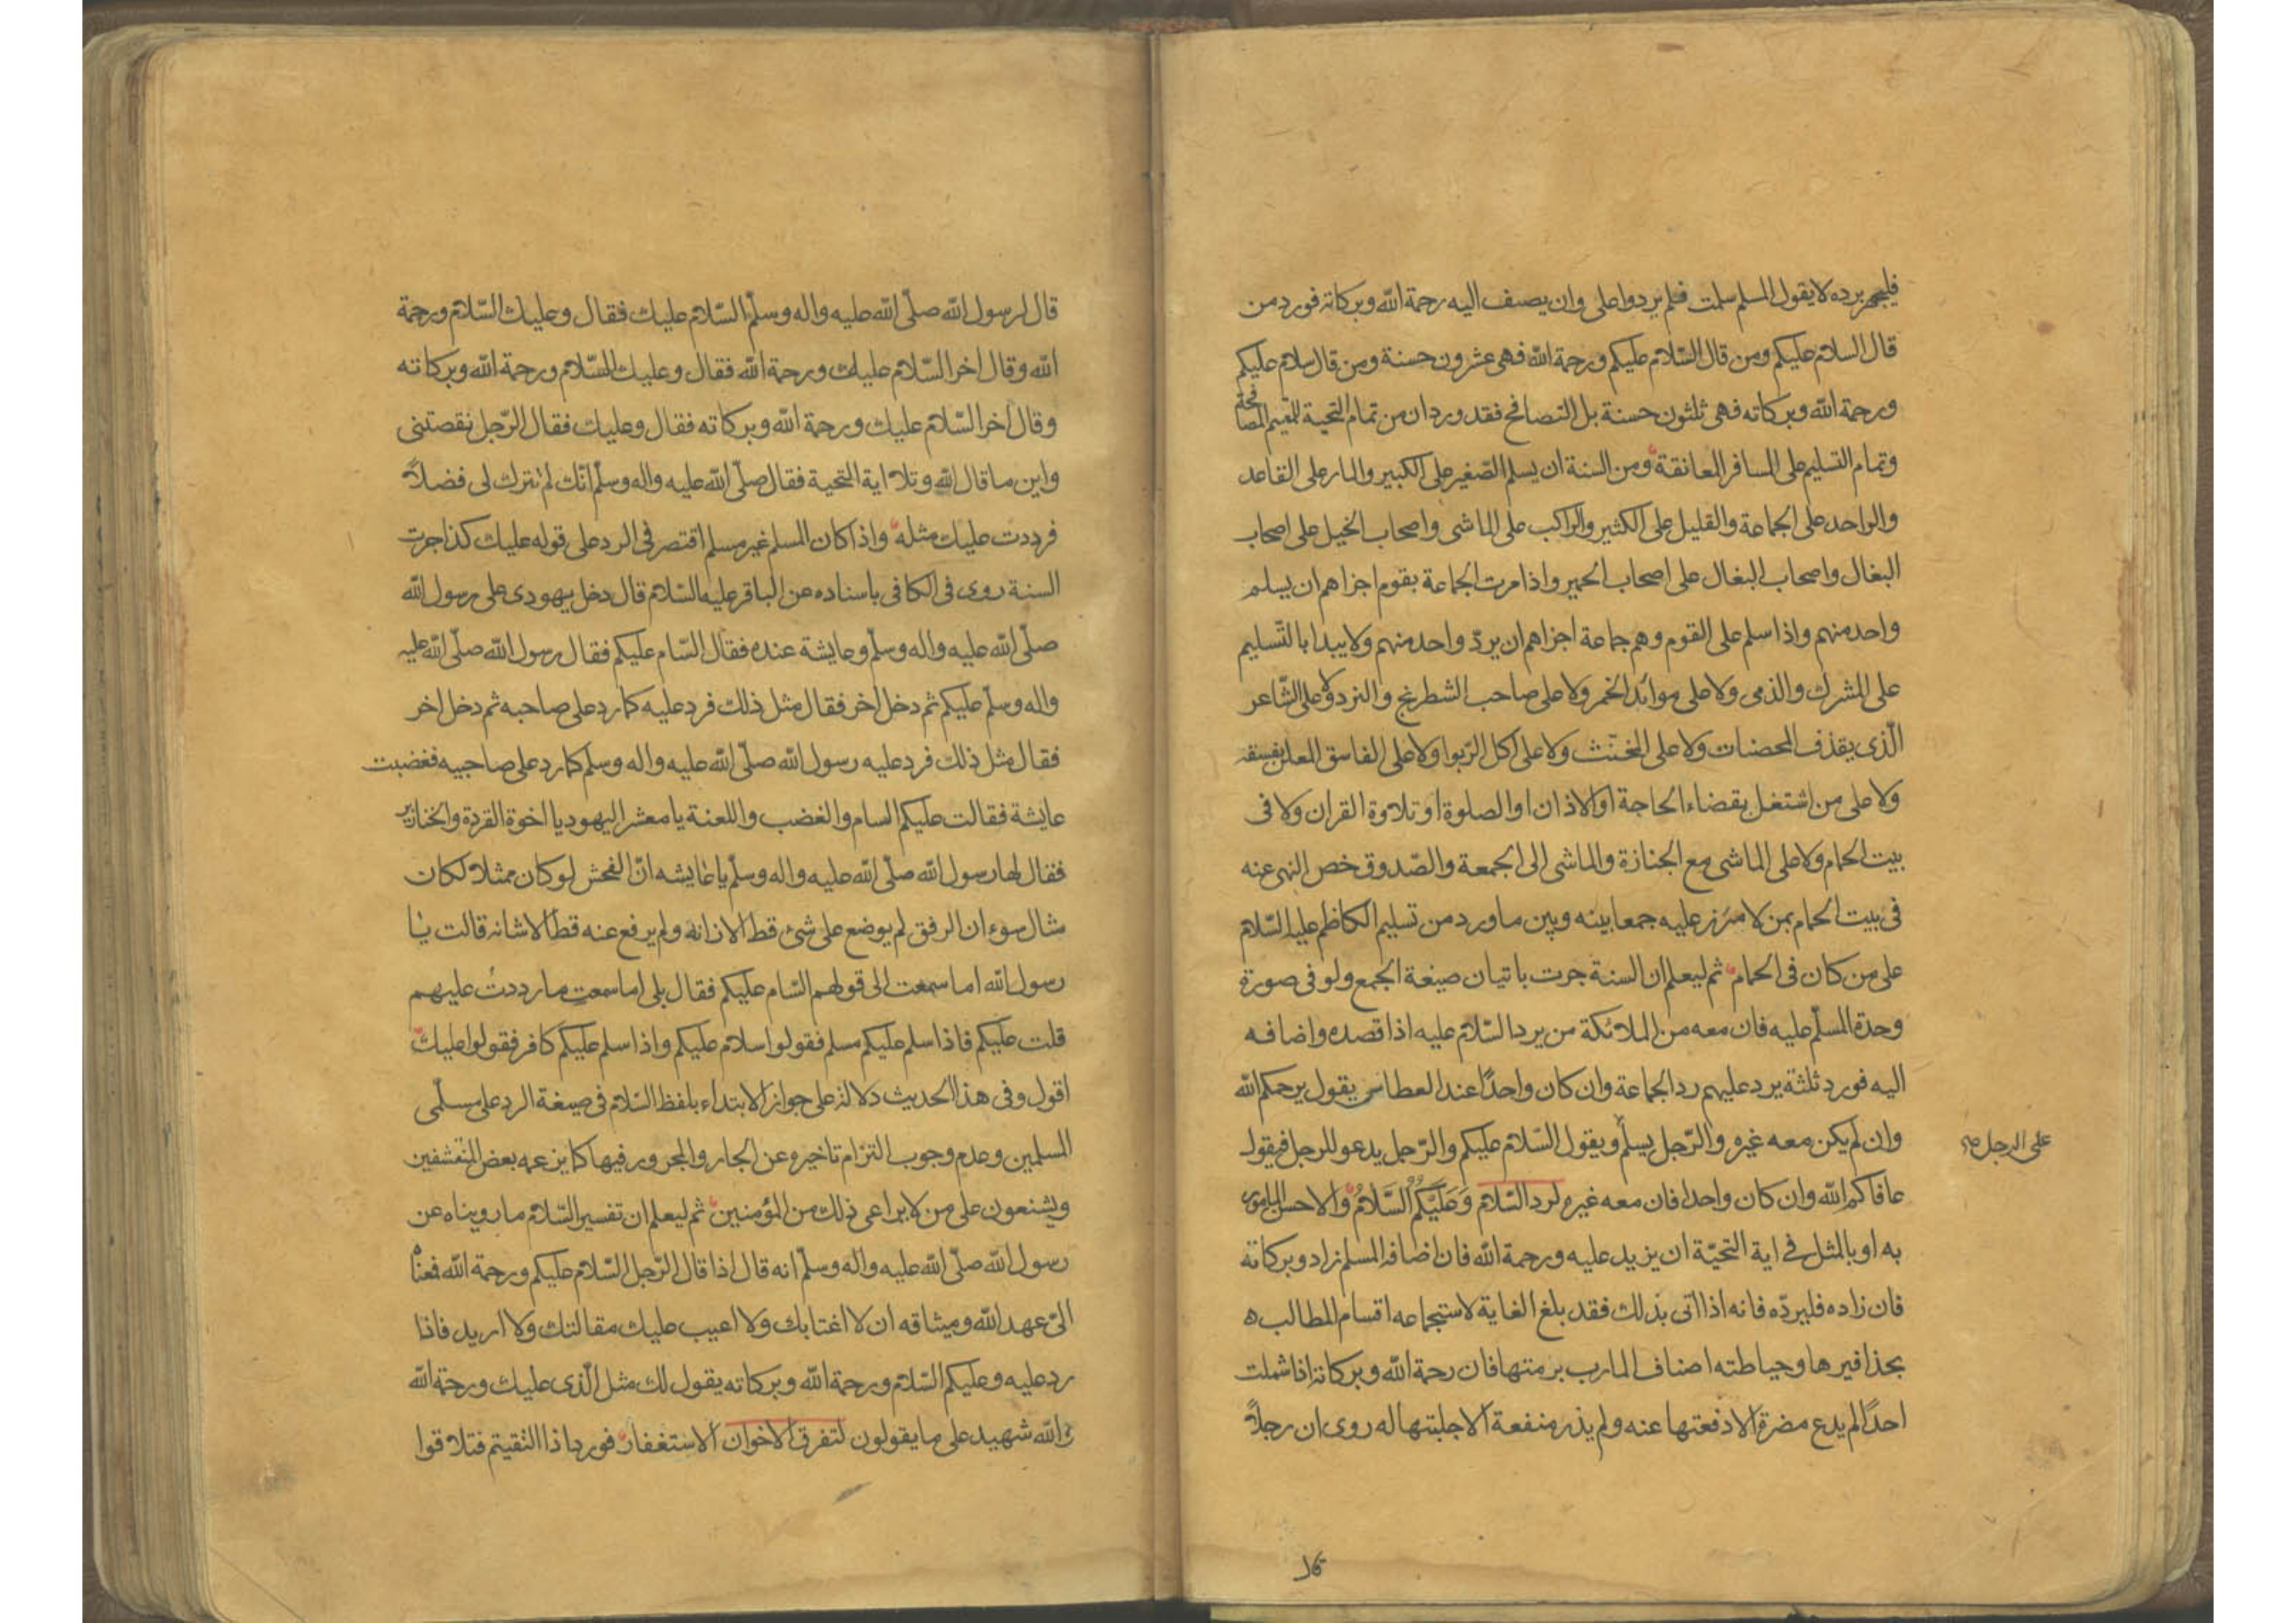 فليجهر برده لا يقول المسلم سلمت فلم يردوا على وان يضيف اليه رحمة الله وبركاته فورد من
قال السلام عليكم ومن قال السّلام عليكم ورحمة الله فهى عشرون حسنة ومن قال سلام عليكم
ورحمة الله وبركاته فهى ثلثون حسنة بل التصافح فقد ورد ان من تمام التحية للمقيم المصافحة
وتمام التسليم على المسافر المعانقة ومن السنة ان يسلم الصّغير على الكبير والمار على القاعد
والواحد على الجماعة والقليل على الكثير والراكب على الماشى واصحاب الخيل على اصحاب
البغال واصحاب البغال على اصحاب الحمير واذا مرت الجماعة بقوم اجزاهم ان يسلم
واحد منهم واذا سلم على القوم وهم جماعة اجزاهم ان يردّ واحد منهم ولا يبدا بالتّسليم
على المشرك والذمى ولا على موائد الخمر ولا على صاحب الشطرنج والنرد ولا على الشّاعر
الّذى يقذف المحصنات ولا على المخنّث ولا على اكل الرّبوا ولا على الفاسق المعلن بفسقه
ولا على من اشتغل بقضاء الحاجة او الاذان او الصلوة او تلاوة القران ولا فى
بيت الحمام ولا على الماشى مع الجنازة والماشى الى الجمعة والصّدوق خص النهى عنه
فى بيت الحمام بمن لا مئزر عليه جمعا بينه وبين ما ورد من تسليم الكاظم عليه السّلام
على من كان فى الحمام ثم ليعلم ان السنة جرت باتيان صيغة الجمع ولو فى صورة
وحدة المسلّم عليه فان معه من الملائكة من يرد السّلام عليه اذا قصده واضافه
اليه فورد ثلثة يرد عليهم رد الجماعة وان كان واحدًا عند العطاس يقول يرحمكم الله
وان لم يكن معه غيره والرّجل يسلّم ويقول السّلام عليكم والرّجل يدعو للرجل فيقول
على الرجل صح
عافاكم الله وان كان واحدا فان معه غيره لرد السّلام وَعَلَيْكُمُ السَّلَامُ والاحسن المامور
به او بالمثل فى اية التحيّة ان يزيد عليه ورحمة الله فان اضافه المسلم زاد وبركاته
فان زاده فليردّه فانه اذا اتى بذلك فقد بلغ الغاية لاستجماعه اقسام المطالب
بحذافيرها وحياطته اصناف المارب برمتها فان رحمة الله وبركاته اذا شملت
احدًا لم يدع مضرة الا دفعتها عنه ولم يذر منفعة الا جلبتها له روى ان رجلاً
قال لرسول الله صلّى الله عليه واله وسلّم السّلام عليك فقال وعليك السّلام ورحمة
الله وقال اخر السّلام عليك ورحمة الله فقال وعليك السّلام ورحمة الله وبركاته
وقال اخر السّلام عليك ورحمة الله وبركاته فقال وعليك فقال الرّجل نقصتنى
واين ما قال الله وتلا اية التحية فقال صلّى الله عليه واله وسلّم انّك لم تترك لى فضلاً
فرددت عليك مثله واذا كان المسلم غير مسلم اقتصر فى الرد على قوله عليك كذا جرت
السنة روى فى الكافى باسناده عن الباقر عليه السّلام قال دخل يهودى على رسول الله
صلّى الله عليه واله وسلّم وعايشة عنده فقال السّام عليكم فقال رسول الله صلّى الله عليه
واله وسلّم عليكم ثم دخل اخر فقال مثل ذلك فرد عليه كما رد على صاحبه ثم دخل اخر
فقال مثل ذلك فرد عليه رسول الله صلّى الله عليه واله وسلم كما رد على صاحبيه فغضبت
عايشة فقالت عليكم السام والغضب واللعنة يا معشر اليهود يا اخوة القردة والخنازير
فقال لها رسول الله صلّى الله عليه واله وسلّم يا عايشه انّ الفحش لو كان ممثلا لكان
مثال سوء ان الرفق لم يوضع على شئ قط الا زانه ولم يرفع عنه قط الا شانه قالت يا
رسول الله اما سمعت الى قولهم السّام عليكم فقال بلى اما سمعت ما رددت عليهم
قلت عليكم فاذا سلم عليكم مسلم فقولوا سلام عليكم واذا سلم عليكم كافر فقولوا عليك
اقول وفى هذا الحديث دلالة على جواز الابتداء بلفظ السّلام فى صيغة الرد على مسلّمى
المسلمين وعدم وجوب التزام تاخيره عن الجار والمجرور فيها كما يزعمه بعض المتقشفين
ويشنعون على من لا يراعى ذلك من المؤمنين ثم ليعلم ان تفسير السّلام ما رويناه عن
رسول الله صلّى الله عليه واله وسلّم انه قال اذا قال الرّجل السّلام عليكم ورحمة الله فمعناه
الىّ عهد الله وميثاقه ان لا اغتابك ولا اعيب عليك مقالتك ولا اريد فاذا
رد عليه وعليكم السّلام ورحمة الله وبركاته يقول لك مثل الّذى عليك ورحمة الله
والله شهيد على ما يقولون لتفرق الاخوان الاستغفار فورد اذا التقيتم فتلاقوا